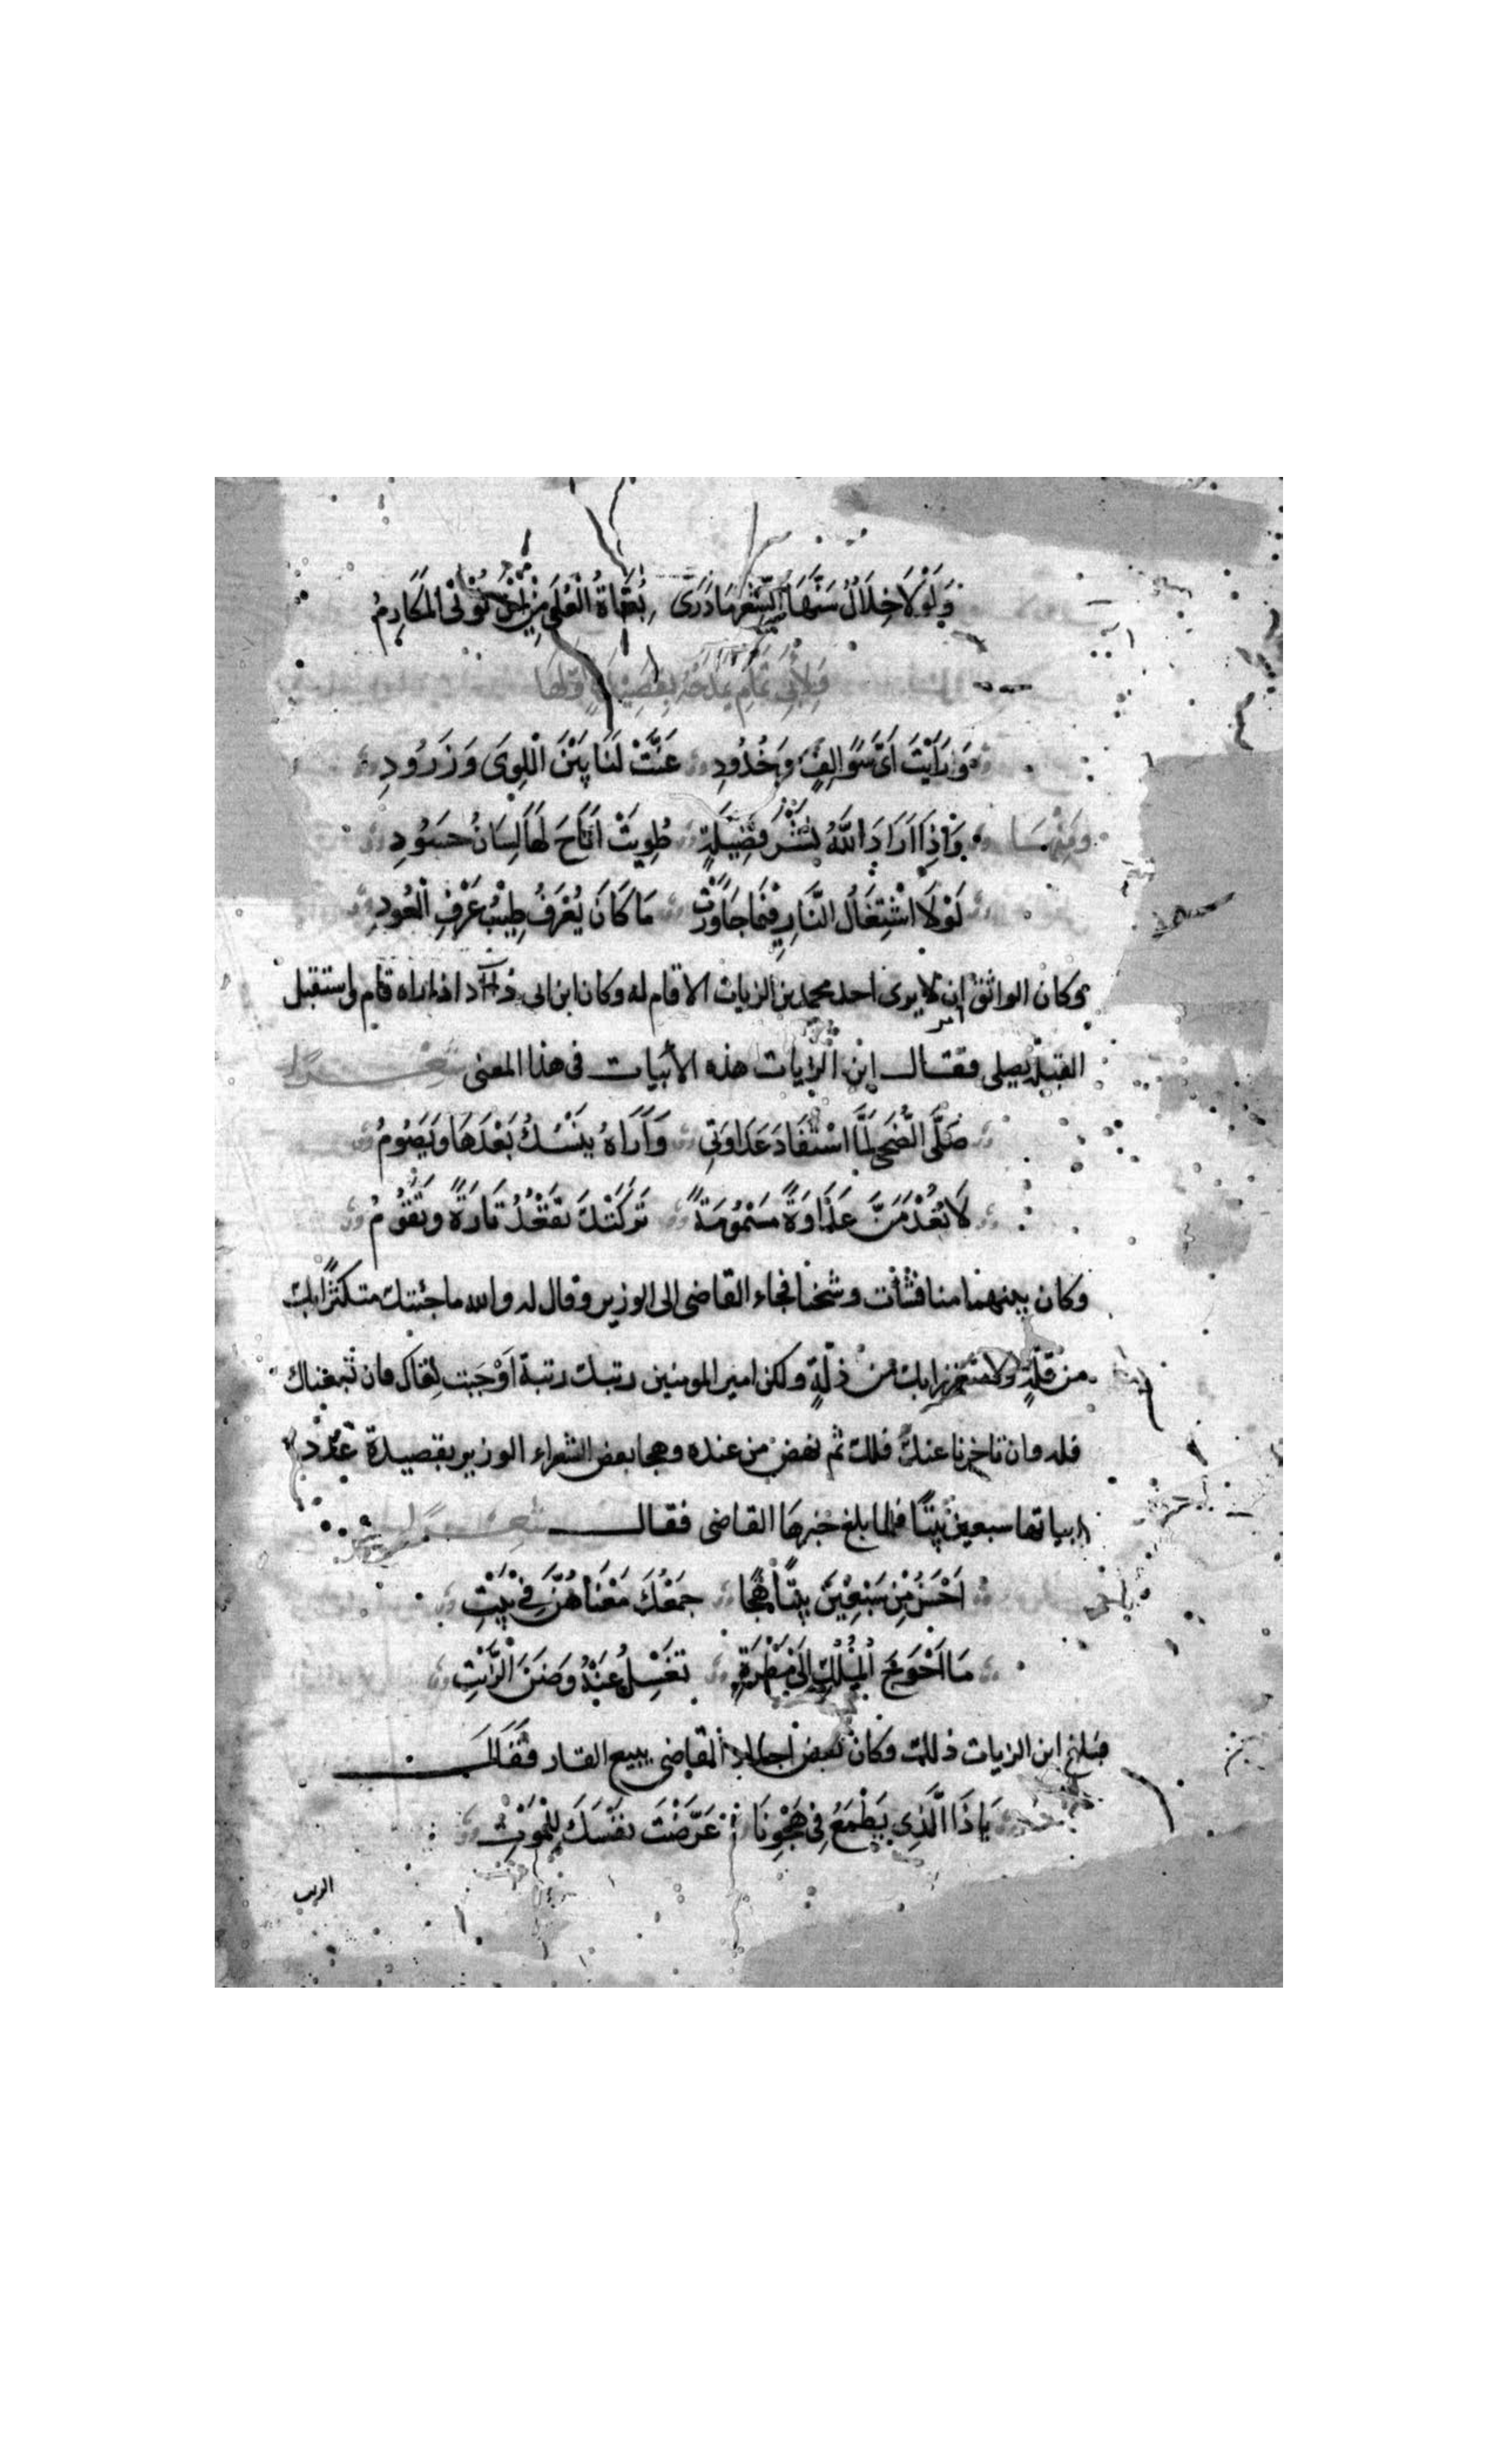 وَلَوْلَا خِلَالٌ سَنَّهَا الشِّعْرُ مَا دَرَى بُغَاةُ الْعُلَى مِنْ اَيْنَ تُؤْتَى المَكَارِمُ
وَلِأَبِي تَمَّام يَمْدَحُهُ بِقَصِيدَةٍ اَوَّلُهَا
وَرَأَيْتَ اَىَّ سَوَالِفٍ وَخُدُودِ عَنَّتْ لَنَا بَيْنَ اللِّوَى وَزَرُودِ
وَمِنْهَا وَاِذَا اَرَادَ اللهُ نَشْرَ فَضِيلَةٍ طُوِيَتْ اَتَاحَ لَهَا لِسَانَ حَسُودِ
لَوْلَا اشْتِعَالُ النَّارِ فِيمَا جَاوَرَتْ مَا كَانَ يُعْرَفُ طِيْبُ عَرْفِ الْعُودِ
وكان الواثق امر ان لا يرى احد محمد بن الزيات الا قام له وكان ابن ابى دؤاد اذا راه قام واستقبل
القبلة يصلى فقال ابن الزيات هذه الأبيات فى هذا المعنى شعرا
صَلَّى الضُّحَى لَمَّا اسْتَفَادَ عَدَاوَتِي وَاَرَاهُ يَنْسُكُ بَعْدَهَا وَيَصُومُ
لَا تُعْدَمَنَّ عَدَاوَةً مَسْمُومَةً تَرَكَتْكَ تَقْعُدُ تَارَةً وَتَقُومُ
وكان بينهما منافثات وشحنا فجاء القاضى الى الوزير وقال له والله ما جئتك متكثرا بك
من قلةٍ ولا متعززا بك من ذلةٍ ولكن امير المومنين رتبك رتبة اَوْجَبَت لقاك فان لقيناك
فله وان تاخرنا عنك فلك ثم نهض من عنده وهجا بعض الشعراء الوزير بقصيدة عدد
ابياتها سبعين بيتًا فلما بلغ خبرها القاضى فقال شعرا
اَحْسَنُ مِنْ سَبْعِيْنَ بَيْتًا هِجًا جَمْعُكَ مَعْنَاهُنَّ فِي بَيْتِ
مَا اَحْوَجَ الْمُلْكَ اِلَى مَطْرَةٍ تَغْسِلُ عَنْهُ وَضَرَ الزَّيْتِ
فبلغ ابن الزيات ذلك وكان بعض اجداد القاضى يبيع القار فَقَالَ
يَاذَا الَّذِى يَطْمَعُ فِى هَجْوِنَا عَرَّضْتَ نَفْسَكَ لِلْمَوْتِ
الزيت